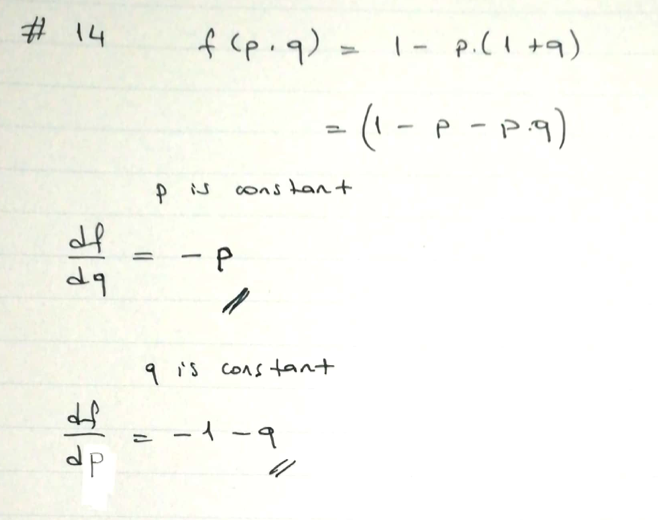 # 14 f(p.q) = 1 - p.(1+q)
= (1 - p - p.q)
p is constant
df/dq = - p
q is constant
df/dp = -1 - q